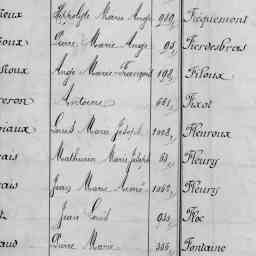 ieux Hippolyte Marie Ange 989, Ficquemont
ioux Pierre Marie Ange 95, Fierdesbras
sioux Ange Marie François 198, Filoux
eron Antoine 661, Fixot
iaux Louis Marie Joseph 1008, Fleuroux
ais Mathurin Marie Joseph 53, Fleury
ais Jean Marie Aimé 1062, Fleury
Jean Louis 930, Floc
aud Pierre Marie 366, Fontaine